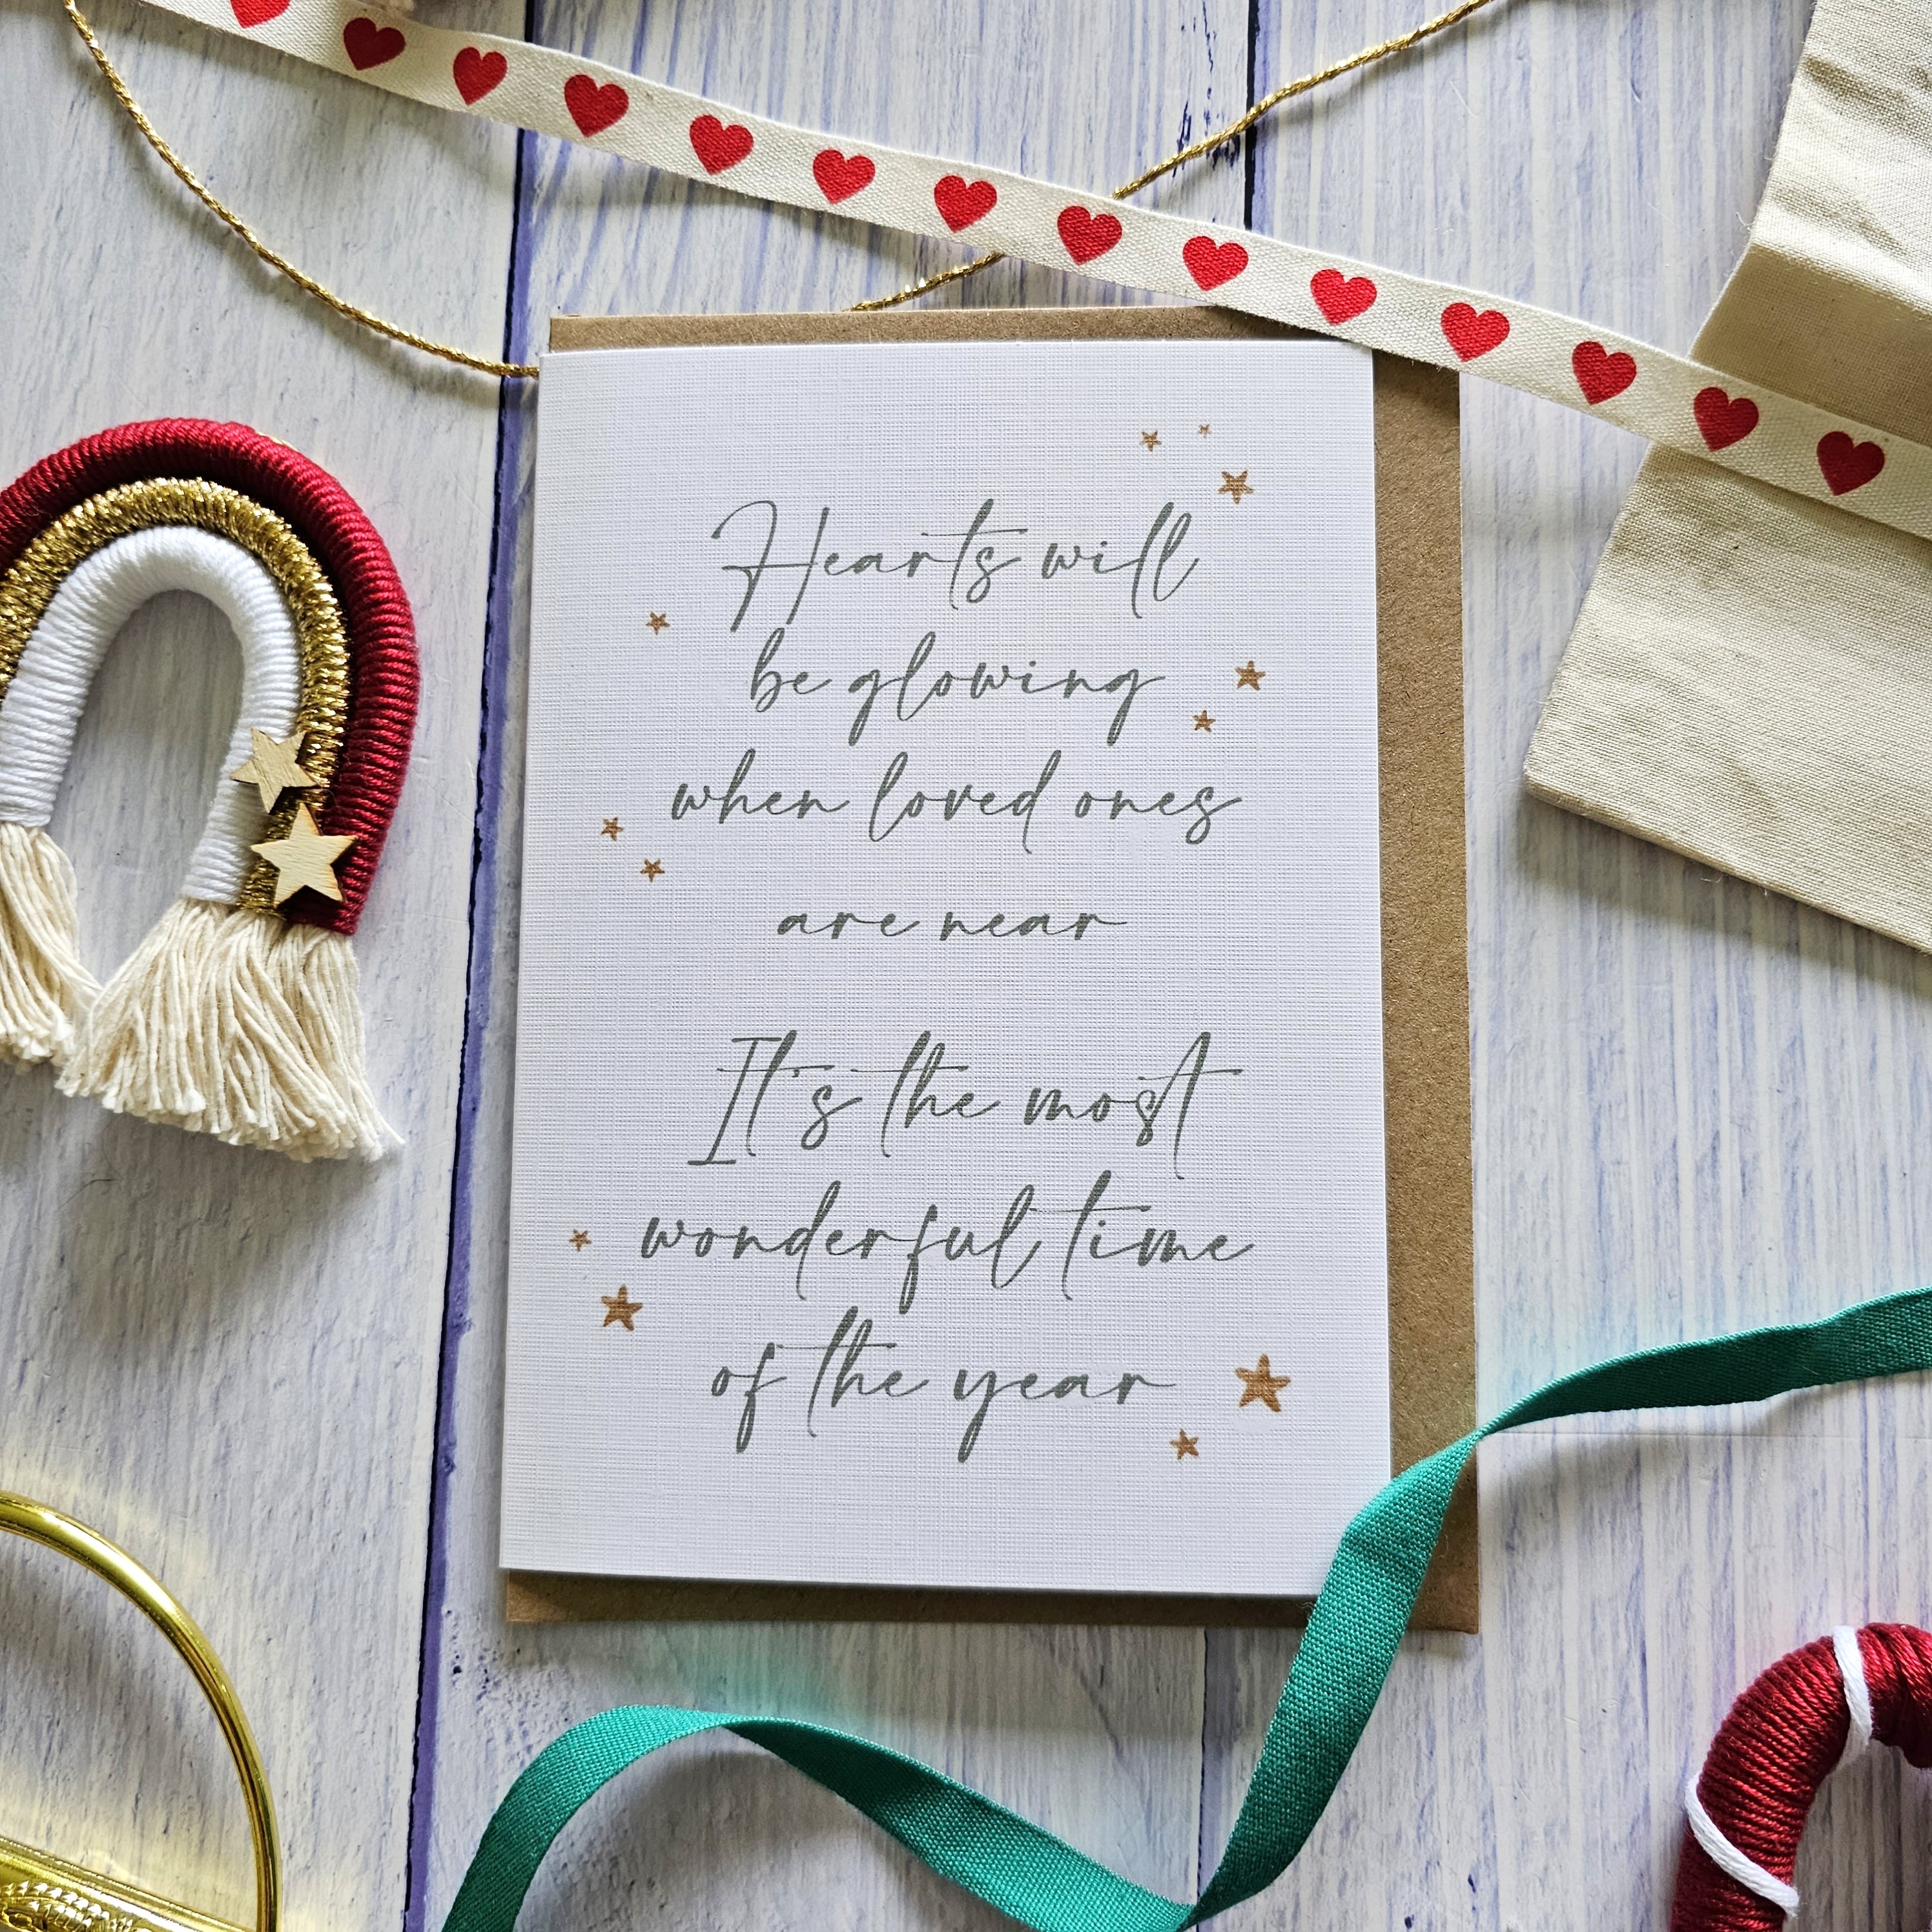 Hearts will
be glowing
when loved ones
are near
It's the most
wonderful time
of the year